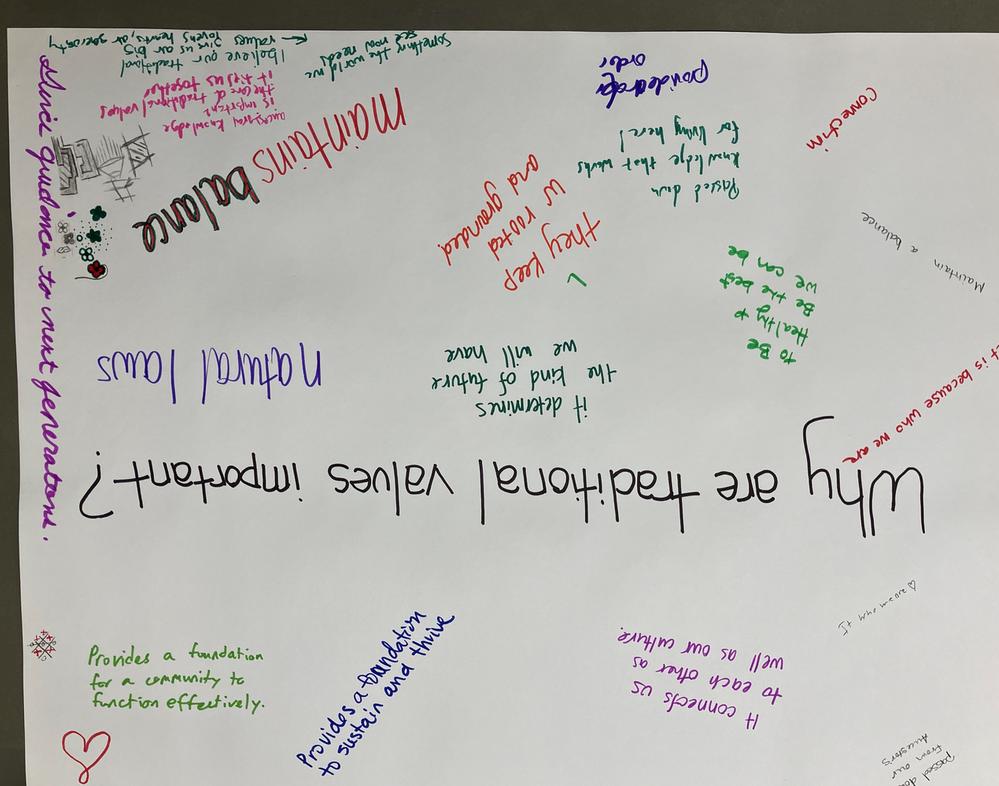 Why are traditional values important?
it determines
the kind of future
we will have
natural laws
they keep
us rooted
and grounded
to Be
Healthy &
Be the best
we can be
Passed down
knowledge that works
for living here!
maintains
balance
ancestral knowledge
is important
the core of traditional values
it ties us together
I believe our traditional
values give us our big
lovens hearts, our generosity
something the world we
see now needs
order
Connection
Maintain a balance
t is because who we are
Gives guidance to next generations.
Provides a foundation
for a community to
function effectively.
Provides a foundation
to sustain and thrive
It connects us
to each other as
well as our culture.
It who we are
passed do
from our